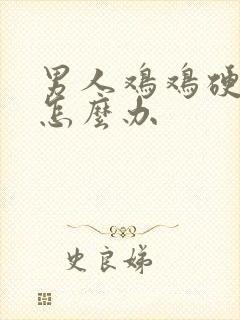 男人鸡鸡硬
怎麼办
史良娣